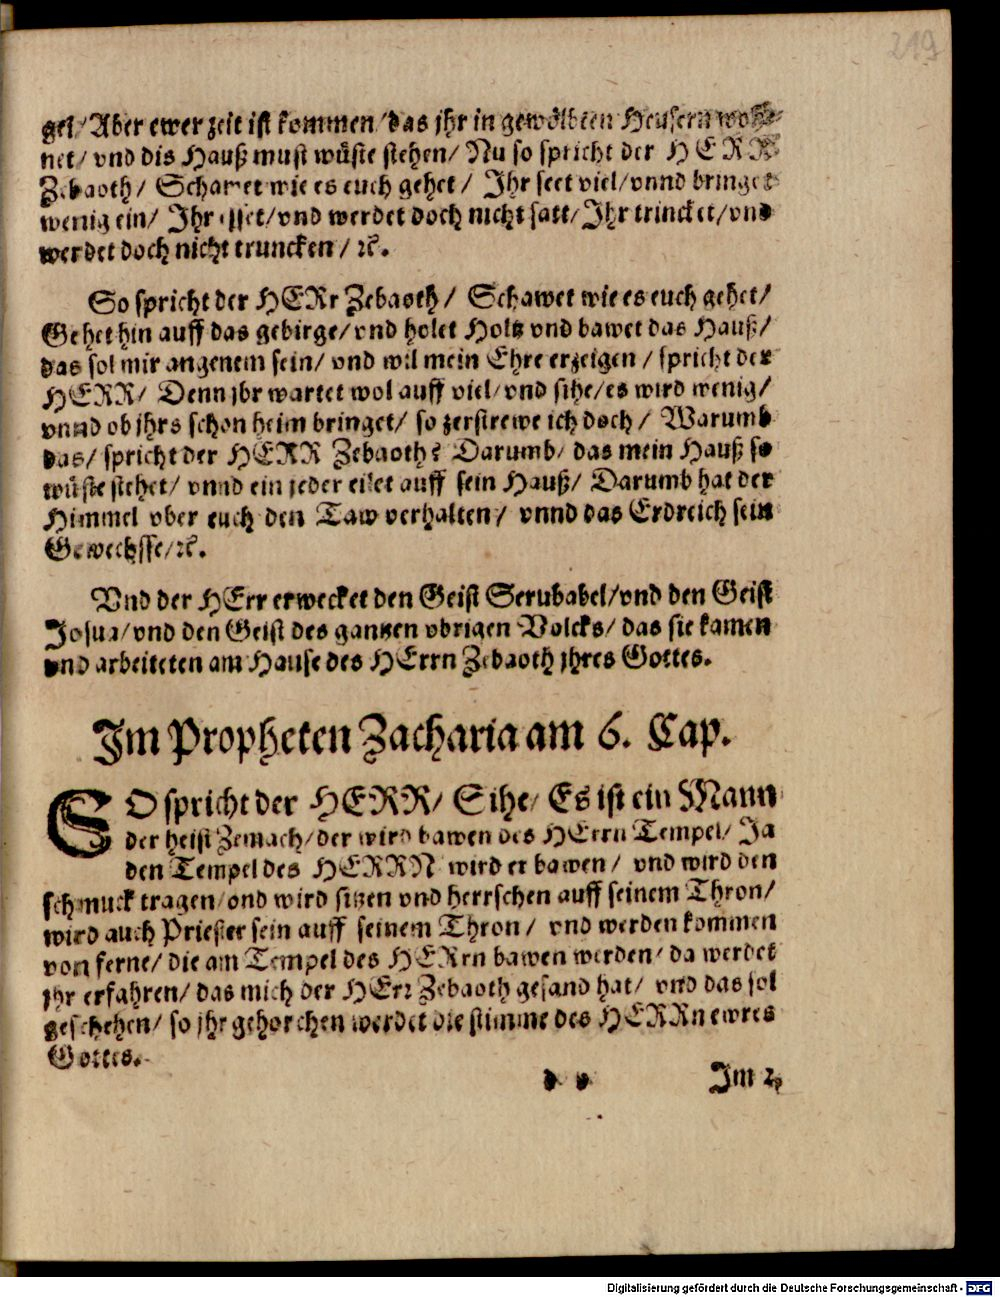 219
gel/ Aber ewer zeit ist kommen/ das jhr in gewölbten Heusern woh-
net/ vnd dis Hauß must wüste stehen/ Nu so spricht der HERR
Zebaoth/ Schawet wie es euch gehet/ Ihr seet viel/ vnnd bringet
wenig ein/ Ihr esset/ vnd werdet doch nicht satt/ Ihr trincket/ vnd
werdet doch nicht truncken/ ꝛc.
So spricht der HERr Zebaoth/ Schawet wie es euch gehet/
Gehet hin auff das gebirge/ vnd holet Holtz vnd bawet das Hauß/
das sol mir angenem sein/ vnd wil mein Ehre erzeigen/ spricht der
HERR/ Denn jhr wartet wol auff viel/ vnd sihe/ es wird wenig/
vnnd ob jhrs schon heim bringet/ so zerstrewe ich doch/ Warumb
das/ spricht der HERR Zebaoth? Darumb/ das mein Hauß so
wüste stehet/ vnnd ein jeder eilet auff sein Hauß/ Darumb hat der
Himmel vber euch den Taw verhalten/ vnnd das Erdreich sein
Gewechsse/ ꝛc.
Vnd der HErr erwecket den Geist Serubabel/ vnd den Geist
Josua/ vnd den Geist des gantzen vbrigen Volcks/ das sie kamen
vnd arbeiteten am Hause des HErrn Zebaoth jhres Gottes.
Im Propheten Zacharia am 6. Cap.
SO spricht der HERR/ Sihe/ Es ist ein Mann
der heist Zemach/ der wird bawen des HErrn Tempel/ Ja
den Tempel des HERRN wird er bawen/ vnd wird den
schmuck tragen/ vnd wird sitzen vnd herrschen auff seinem Thron/
wird auch Priester sein auff seinem Thron/ vnd werden kommen
von ferne/ die am Tempel des HERrn bawen werden/ da werdet
jhr erfahren/ das mich der HErr Zebaoth gesand hat/ vnd das sol
geschehen/ so jhr gehorchen werdet die stimme des HERRn ewres
Gottes.
Im
Digitalisierung gefördert durch die Deutsche Forschungsgemeinschaft - DFG